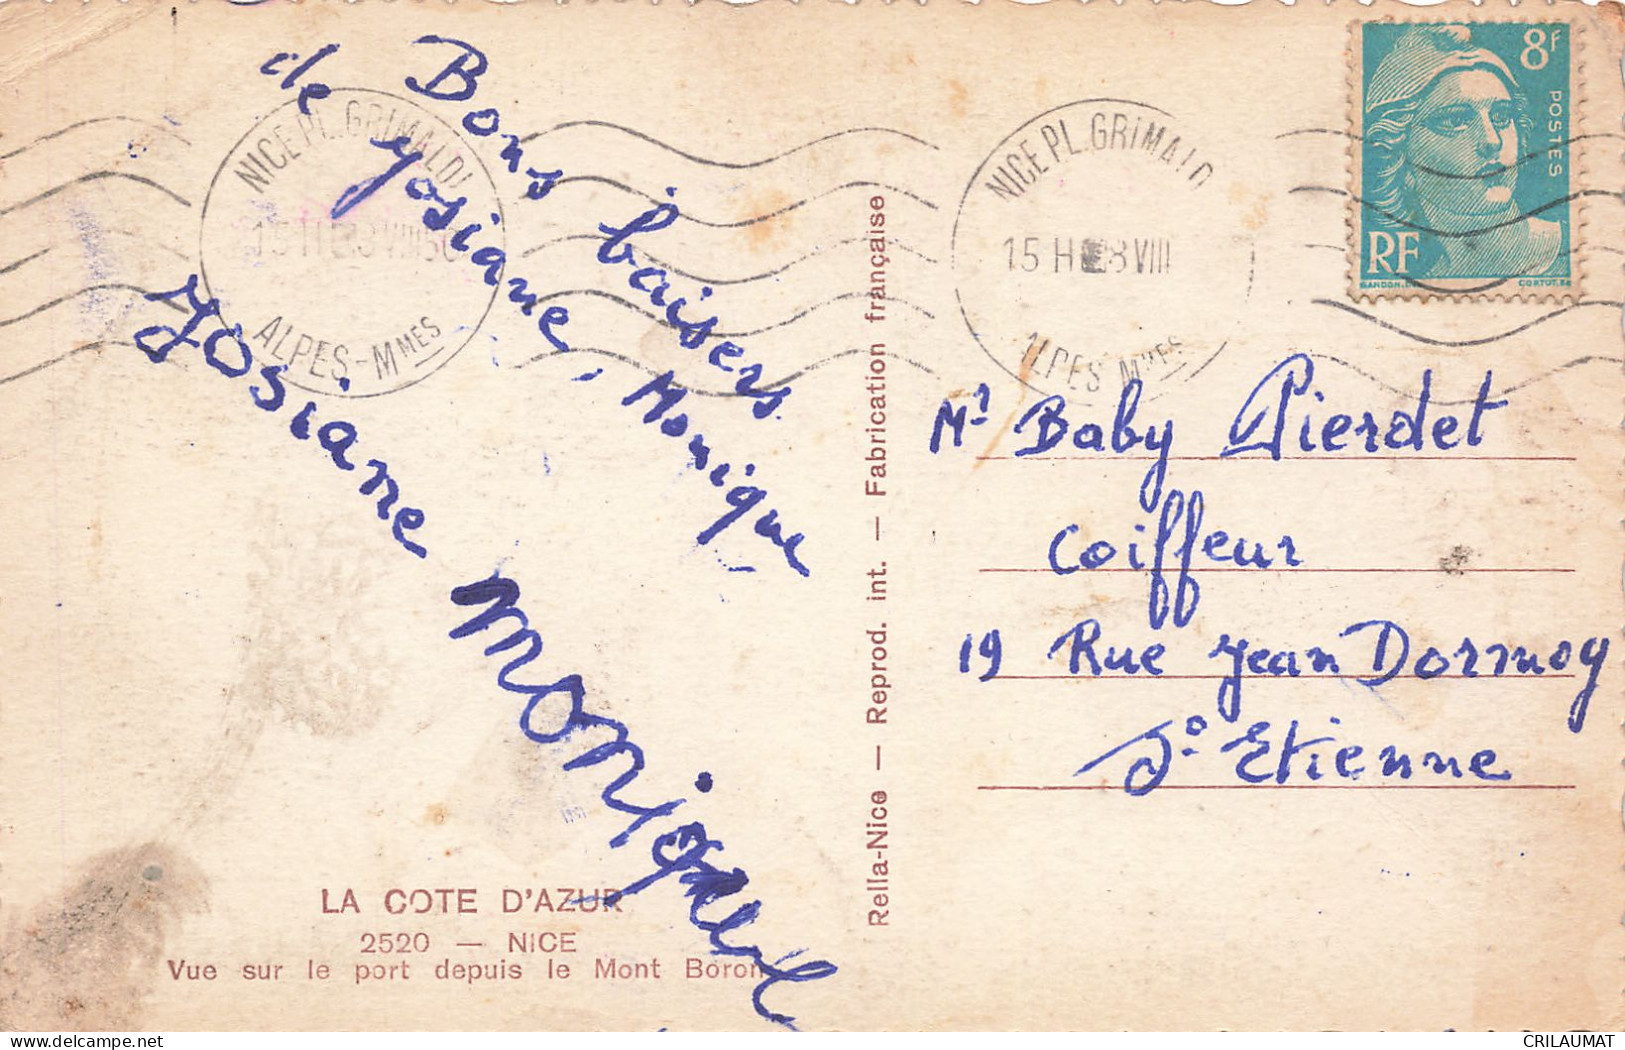 Bons baisers
de Josiane, Monique
Josiane
Monique
NICE PL. GRIMALDI
15 H 28 VIII 50
ALPES-MMES
NICE PL. GRIMALD
15 H 28 VIII
ALPES MMES
8F
POSTES
RF
GANDON
CORTOT
Mr Baby Pierdet
Coiffeur
19 Rue Jean Dormoy
St Etienne
Rella-Nice — Reprod. int. — Fabrication française
LA COTE D'AZUR
2520 — NICE
Vue sur le port depuis le Mont Boron
CRILAUMAT